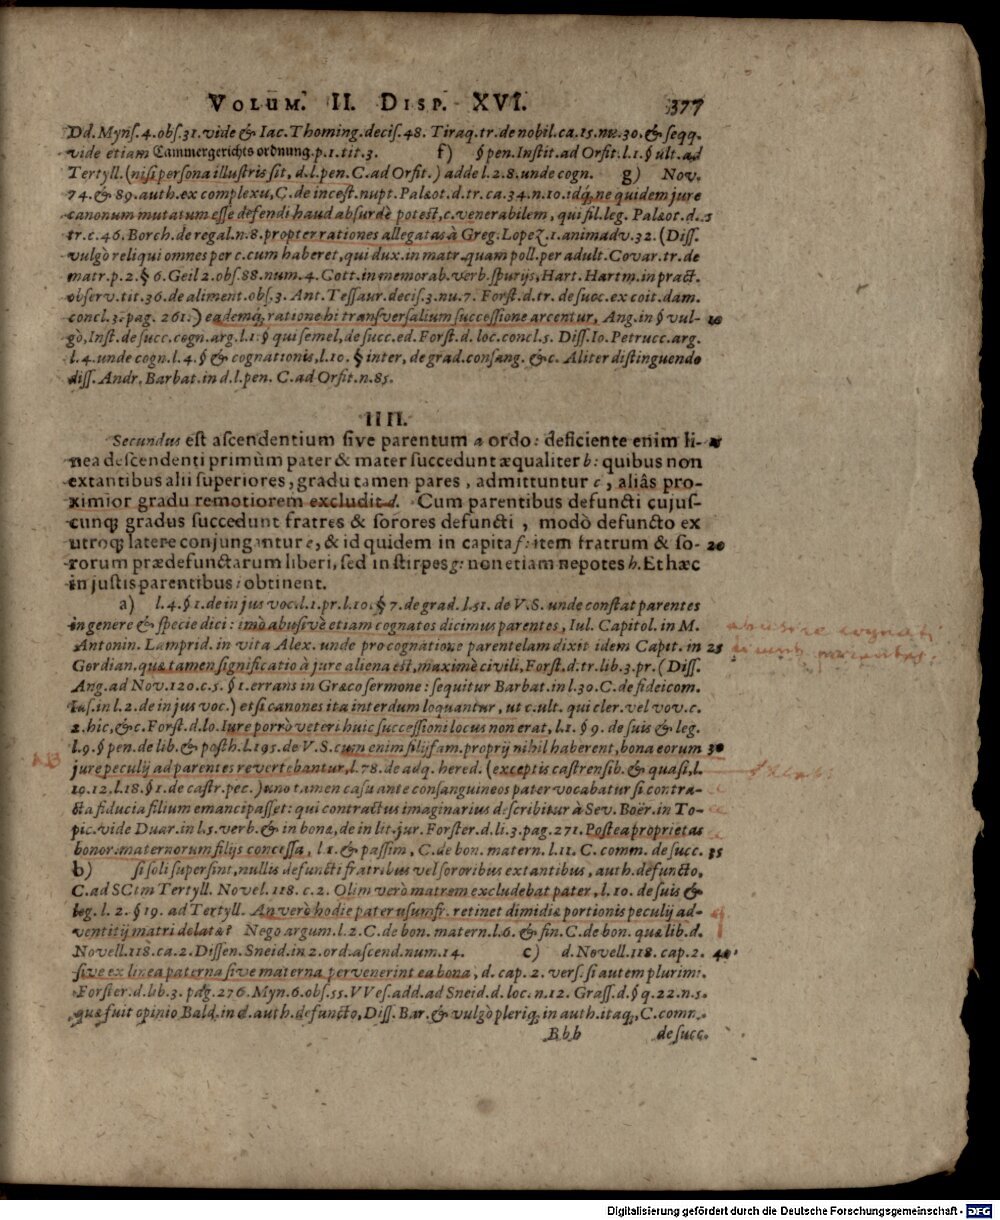 VOLUM. II. DISP. XVI. 377
Dd. Mynſ. 4. obſ. 31. vide & Iac. Thoming. deciſ. 48. Tiraq. tr. de nobil. ca. 15. nu. 30. & ſeqq.
vide etiam Cammergerichts ordnung. p. 1. tit. 3. f) § pen. Inſtit. ad Orfit. l. 1. § ult. ad
Tertyll. (niſi perſona illuſtris ſit, d. l. pen. C. ad Orfit.) adde l. 2. 8. unde cogn. g) Nov.
74. & 89. auth. ex complexu, C. de inceſt. nupt. Palæot. d. tr. ca. 34. n. 10. idq́, ne quidem jure
canonum mutatum eſſe defendi haud abſurdè poteſt, c. venerabilem, qui fil. leg. Palæot. d. 5
tr. c. 46. Borch. de regal. n. 8. propter rationes allegatas à Greg. Lopez. 1. animadv. 32. (Diſſ.
vulgò reliqui omnes per c. cum haberet, qui dux. in matr. quam poll. per adult. Covar. tr. de
matr. p. 2. § 6. Geil 2. obſ. 88. num. 4. Cott. in memorab. verb. ſpurijs, Hart. Hartm. in pract.
obſerv. tit. 36. de aliment. obſ. 3. Ant. Teſſaur. deciſ. 3. nu. 7. Forſt. d. tr. de ſuoc. ex coit. dam.
concl. 3. pag. 261.) eademq́, ratione hi tranſverſalium ſucceſſione arcentur, Ang. in § vul- 10
gò, Inſt. de ſucc. cogn. arg. l. 1. § qui ſemel, de ſucc. ed. Forſt. d. loc. concl. 5. Diſſ. Io. Petrucc. arg.
l. 4. unde cogn. l. 4. § & cognationis, l. 10. § inter, de grad. conſang. &c. Aliter diſtinguendo
diſſ. Andr. Barbat. in d. l. pen. C. ad Orfit. n. 85.
IIII.
Secundus eſt aſcendentium ſive parentum a ordo: deficiente enim li- 15
nea deſcendenti primùm pater & mater ſuccedunt æqualiter b: quibus non
extantibus alii ſuperiores, gradu tamen pares, admittuntur c, aliâs pro-
ximior gradu remotiorem excludit d. Cum parentibus defuncti cujuſ-
cunq; gradus ſuccedunt fratres & ſorores defuncti, modò defuncto ex
utroq; latere conjungantur e, & id quidem in capita f: item fratrum & ſo- 20
rorum prædefunctarum liberi, ſed in ſtirpes g: non etiam nepotes h. Et hæc
in juſtis parentibus i obtinent.
a) l. 4. § 1. de in jus voc. l. 1. pr. l. 10. § 7. de grad. l. 51. de V. S. unde conſtat parentes
in genere & ſpecie dici: imò abuſivè etiam cognatos dicimus parentes, Iul. Capitol. in M.
Antonin. Lamprid. in vita Alex. unde pro cognatione parentelam dixit idem Capit. in 25
Gordian. quæ tamen ſignificatio à jure aliena eſt, maximè civili, Forſt. d. tr. lib. 3. pr. (Diſſ.
Ang. ad Nov. 120. c. 5. § 1. errans in Græco ſermone: ſequitur Barbat. in l. 30. C. de fideicom.
Iaſ. in l. 2. de in jus voc.) et ſi canones ita interdum loquantur, ut c. ult. qui cler. vel vov. c.
2. hic, &c. Forſt. d. lo. Iure porrò veteri huic ſucceſſioni locus non erat, l. 1. § 9. de ſuis & leg.
l. 9. § pen. de lib. & poſth. l. 195. de V. S. cum enim filijfam. proprij nihil haberent, bona eorum 30
jure peculij ad parentes revertebantur, l. 78. de adq. hered. (exceptis caſtrenſib. & quaſi, l.
10. 12. l. 18. § 1. de caſtr. pec.) uno tamen caſu ante conſanguineos pater vocabatur ſi contra-
cta fiducia filium emancipaſſet: qui contractus imaginarius deſcribitur à Sev. Boër. in To-
pic. vide Duar. in l. 5. verb. & in bona, de in lit. jur. Forſter. d. li. 3. pag. 271. Poſtea proprietas
bonor. maternorum filijs conceſſa, l. 1. & paſſim, C. de bon. matern. l. 11. C. comm. de ſucc. 35
b) ſi ſoli ſuperſint, nullis defuncti fratribus vel ſororibus extantibus, auth. defuncto,
C. ad SCtm Tertyll. Novel. 118. c. 2. Olim verò matrem excludebat pater, l. 10. de ſuis &
leg. l. 2. § 19. ad Tertyll. An verò hodie pater uſumfr. retinet dimidiæ portionis peculij ad-
ventitij matri delatæ? Nego argum. l. 2. C. de bon. matern. l. 6. & fin. C. de bon. quæ lib. d.
Novell. 118. ca. 2. Diſſen. Sneid. in 2. ord. aſcend. num. 14. c) d. Novell. 118. cap. 2. 40
ſive ex linea paterna ſive materna pervenerint ea bona, d. cap. 2. verſ. ſi autem plurimi.
Forſter. d. lib. 3. pag. 276. Myn. 6. obſ. 55. VVeſ. add. ad Sneid. d. loc. n. 12. Graſſ. d. § q. 22. n. 5.
quæ fuit opinio Bald. in d. auth. defuncto, Diſſ. Bar. & vulgò pleriq́, in auth. itaq́, C. comm.
Bbb de ſucc.
abusive cognati
dicunt parentes.